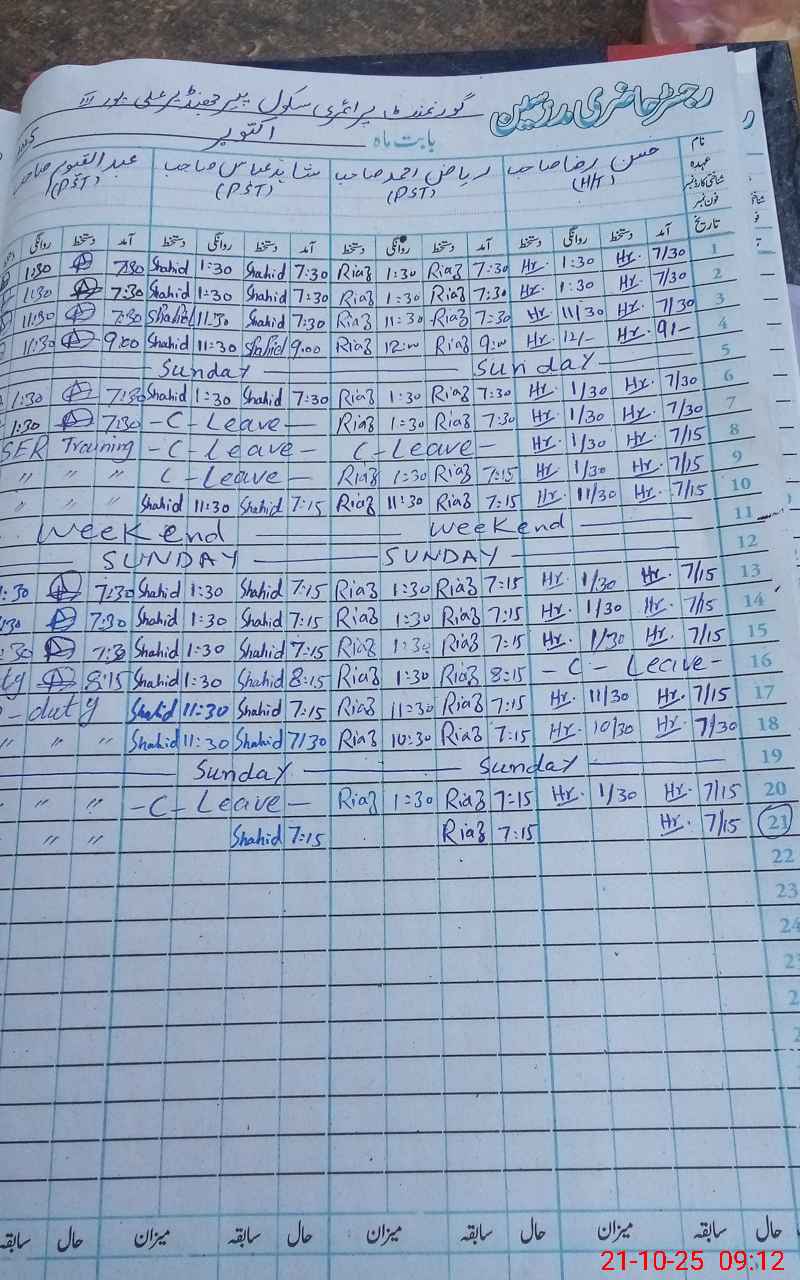 رجسٹر حاضری مدرسین گورنمنٹ پرائمری سکول پیر جھنڈیر علی پور III
بابت ماہ اکتوبر
نام حسن رضا صاحب ریاض احمد صاحب شاہد عباس صاحب عبدالقیوم صاحب
عہدہ (H/T) (PST) (PST) (PST)
شناختی کارڈ نمبر
فون نمبر
تاریخ آمد دستخط روانگی دستخط آمد دستخط روانگی دستخط آمد دستخط روانگی دستخط آمد دستخط روانگی
1:30 7:30 Shahid 1:30 Shahid 7:30 Riaz 1:30 Riaz 7:30 Hr. 1:30 Hr. 7/30 1
1:30 7:30 Shahid 1:30 Shahid 7:30 Riaz 1:30 Riaz 7:30 Hr. 1:30 Hr. 7/30 2
11:30 7:30 Shahid 11:30 Shahid 7:30 Riaz 11:30 Riaz 7:30 Hr. 11/30 Hr. 7/30 3
11:30 9:00 Shahid 11:30 Shahid 9:00 Riaz 12:00 Riaz 9:00 Hr. 12/- Hr. 9/- 4
Sunday Sunday 5
1:30 7:30 Shahid 1:30 Shahid 7:30 Riaz 1:30 Riaz 7:30 Hr. 1/30 Hr. 7/30 6
1:30 7:30 -C-Leave- Riaz 1:30 Riaz 7:30 Hr. 1/30 Hr. 7/30 7
SER Training -C-Leave- C-Leave- Hr. 1/30 Hr. 7/15 8
" " " C-Leave- Riaz 1:30 Riaz 7:15 Hr. 1/30 Hr. 7/15 9
" " " Shahid 11:30 Shahid 7:15 Riaz 11:30 Riaz 7:15 Hr. 11/30 Hr. 7/15 10
Weekend Weekend 11
SUNDAY SUNDAY 12
1:30 7:30 Shahid 1:30 Shahid 7:15 Riaz 1:30 Riaz 7:15 Hr. 1/30 Hr. 7/15 13
:30 7:30 Shahid 1:30 Shahid 7:15 Riaz 1:30 Riaz 7:15 Hr. 1/30 Hr. 7/15 14
:30 7:3 Shahid 1:30 Shahid 7:15 Riaz 1:30 Riaz 7:15 Hr. 1/30 Hr. 7/15 15
ty 8:15 Shahid 1:30 Shahid 8:15 Riaz 1:30 Riaz 8:15 -C- Leave- 16
-duty Shahid 11:30 Shahid 7:15 Riaz 11:30 Riaz 7:15 Hr. 11/30 Hr. 7/15 17
" " " Shahid 11:30 Shahid 7/30 Riaz 10:30 Riaz 7:15 Hr. 10/30 Hr. 7/30 18
Sunday Sunday 19
" " " -C-Leave- Riaz 1:30 Riaz 7:15 Hr. 1/30 Hr. 7/15 20
" " Shahid 7:15 Riaz 7:15 Hr. 7/15 21
22
23
حال سابقہ میزان حال سابقہ میزان حال سابقہ میزان حال سابقہ
21-10-25 09:12